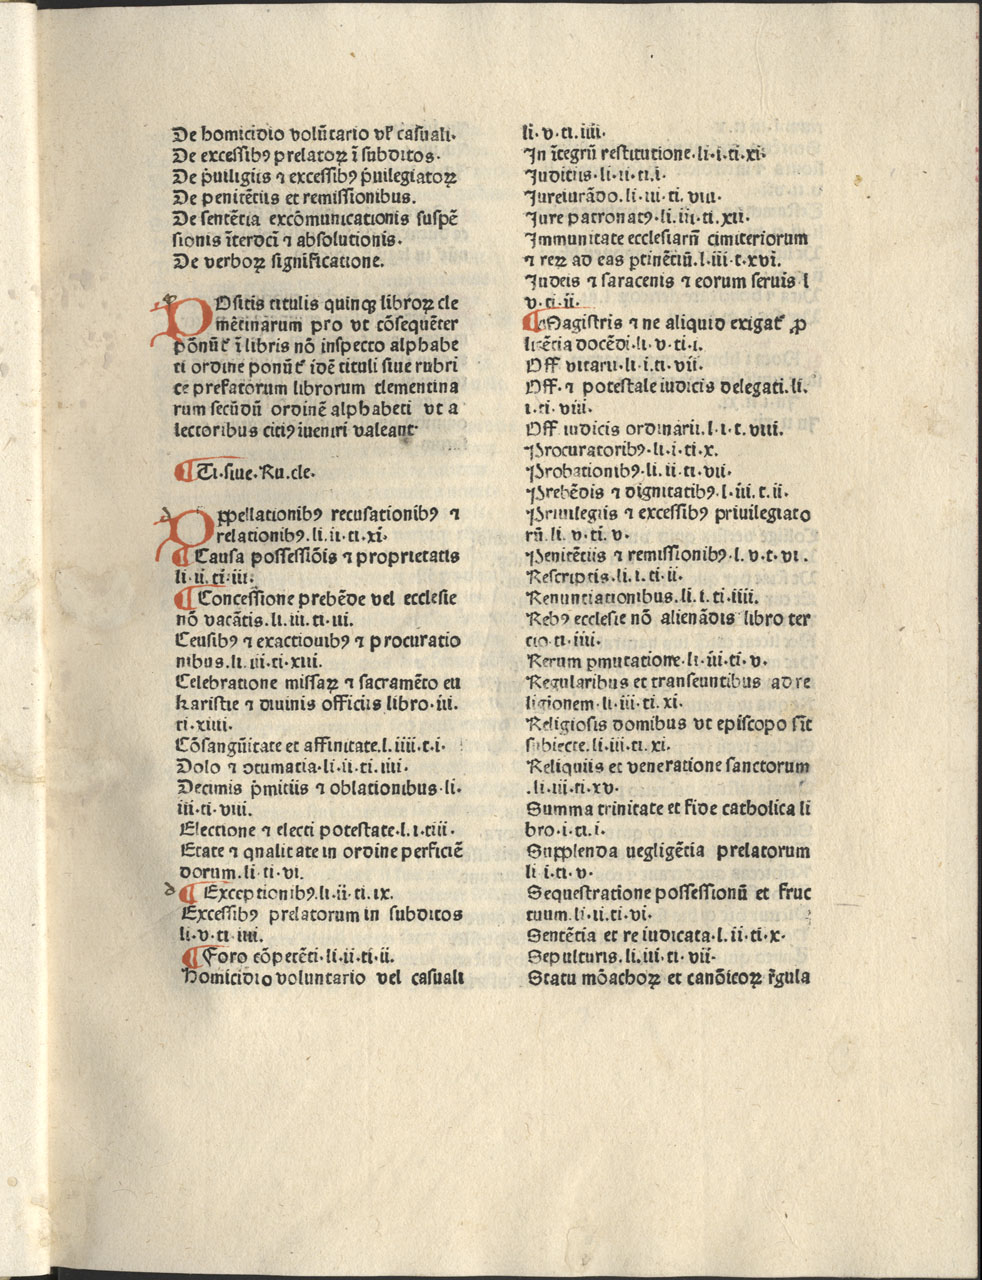 De homicidio volũtario vł casuali.
De excessibꝰ prelatoꝝ ĩ subditos.
De p̃uiligiis ⁊ excessibꝰ p̃uilegiatoꝝ
De penitẽtiis et remissionibus.
De sentẽtia excõmunicationis suspẽ
sionis ĩterdcĩ ⁊ absolutionis.
De verboꝝ significatione.
POsitis titulis quinqꝫ libroꝝ cle
mẽtinarum pro vt cõsequẽter
põnũt᷑ ĩ libris nõ inspecto alphabe
ti ordine ponũt᷑ idẽ tituli siue rubri
ce prefatorum librorum clementina
rum secũdũ ordinẽ alphabeti vt a
lectoribus citiꝰ iueniri valeant·
¶Ti.siue.Ru.cle.
a
ppellationibꝰ recusationibꝰ ⁊
relationibꝰ.li.ii.ti.xi.
¶Causa possessiõis ⁊ proprietatis
li.ii.ti.iii.
¶Concessione prebẽde vel ecclesie
nõ vacãtis.li.iii.ti.iii.
Ceusibꝰ ⁊ exactiouibꝰ ⁊ procuratio
nibus.li.iii.ti.xiii.
Celebratione missaꝝ ⁊ sacramẽto eu
karistie ⁊ diuinis officiis libro.iii.
ti.xiiii.
Cõsangũitate et affinitate.l.iiii.t.i.
Dolo ⁊ ↄtumatia.li.ii.ti.iiii.
Decimis p̃mitiis ⁊ oblationibus.li.
iii.ti.viii.
Electione ⁊ electi potestate.l.i.tiii.
Etate ⁊ qnalitate in ordine perficiẽ
dorum.li.ti.vi.
¶Exceptionibꝰ.li.ii.ti.ix.
Excessibꝰ prelatorum in subditos
li.v.ti.iiii.
¶Foro cõpetẽti.li.ii.ti.ii.
Homicidio voluntario vel casuali
li.v.ti.iiii.
In ĩtegrũ restitutione.li.i.ti.xi.
Juditiis.li.ii.ti.i.
Jureiurãdo.li.iii.ti.viii.
Jure patronatꝰ.li.iii.ti.xii.
Immunitate ecclesiarũ cimiteriorum
⁊ reꝝ ad eas ptinẽtiũ.l.iii.t.xvi.
Judeis ⁊ saracenis ⁊ eorum seruis l
v.ti.ii.
¶Magistris ⁊ ne aliquid exigat᷑ ꝓ
licẽtia docẽdi.li.v.ti.i.
Off vicarii.li.i.ti.vii.
Off.⁊ potestale iudicis delegati.li.
i.ti.viii.
Off iudicis ordinarii.l.i.t.viii.
Procuratoribꝰ.li.i.ti.x.
Probationibꝰ.li.ii.ti.vii.
Prebẽdis ⁊ dignitatibꝰ.l.iii.t.ii.
Priuilegiis ⁊ excessibꝰ priuilegiato
rũ.li.v.ti.v.
Penitẽtiis ⁊ remissionibꝰ.l.v.t.vi.
Rescriptis.li.i.ti.ii.
Renuntiationibus.li.i.ti.iiii.
Rebꝰ ecclesie nõ alienãdis libro ter
cio.ti.iiii.
Rerum pmutatione.li.iii.ti.v.
Regularibus et transeuntibus ad re
ligionem.li.iii.ti.xi.
Religiosis domibus vt episcopo sĩt
subiecte.li.iii.ti.xi.
Reliquiis et veneratione sanctorum
.li.iii.ti.xv.
Summa trinitate et fide catholica li
bro.i.ti.i.
Supplenda uegligẽtia prelatorum
li i.ti.v.
Sequestratione possessionũ et fruc
tuum.li.ii.ti.vi.
Sentẽtia et re iudicata.l.ii.ti.x.
Sepulturis.li.iii.ti.vii.
Statu mõachoꝝ et canõicoꝝ r̃gula